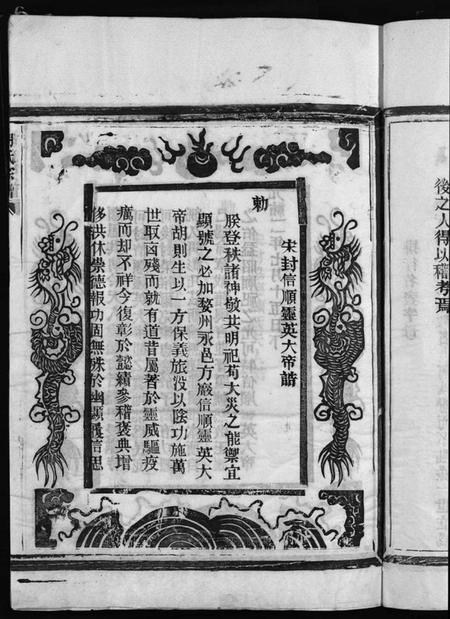 後之人得以稽考焉
宋封信順靈英大帝誥
勅
朕登秩諸神敬共明祀苟大災之能禦宜
顯號之必加婺州永邑方巖信順靈英大
帝胡則生以一方保義旅沒以陰功施萬
世取凶殘而就有道昔屬著於靈威驅疫
癘而却不祥今復彰於懿績參稽褒典增
侈洪休崇德報功固無殊於幽顯